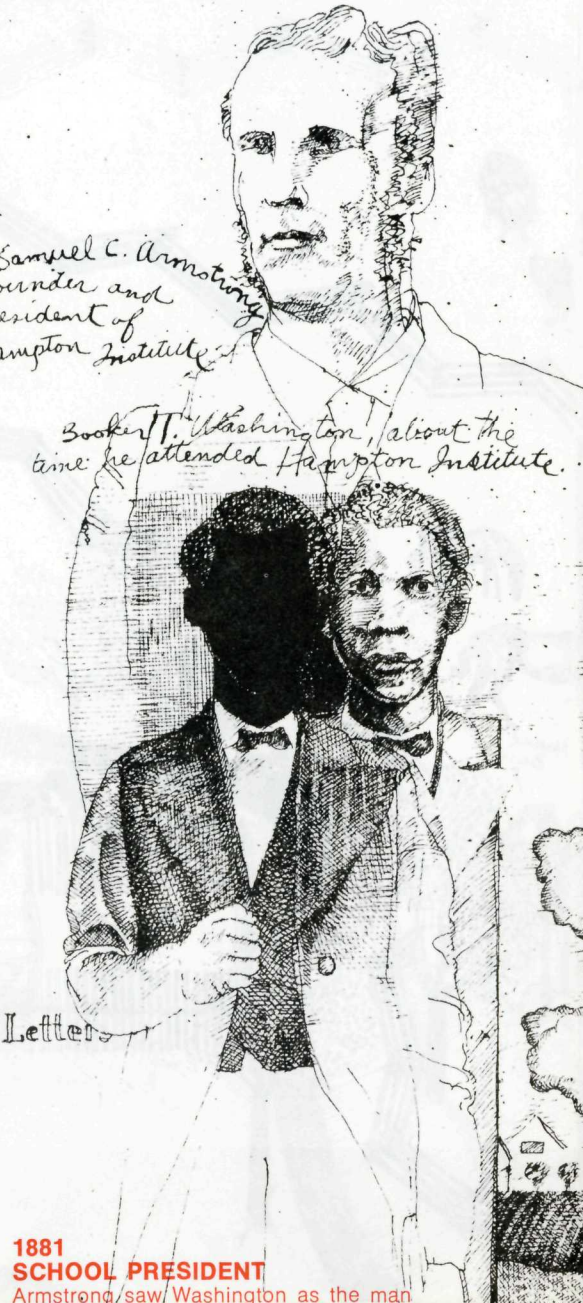 Samuel C. Armstrong
ounder and
esident of
ampton Institute
Booker T. Washington, about the
time he attended Hampton Institute.
Letters
1881
SCHOOL PRESIDENT
Armstrong saw Washington as the man